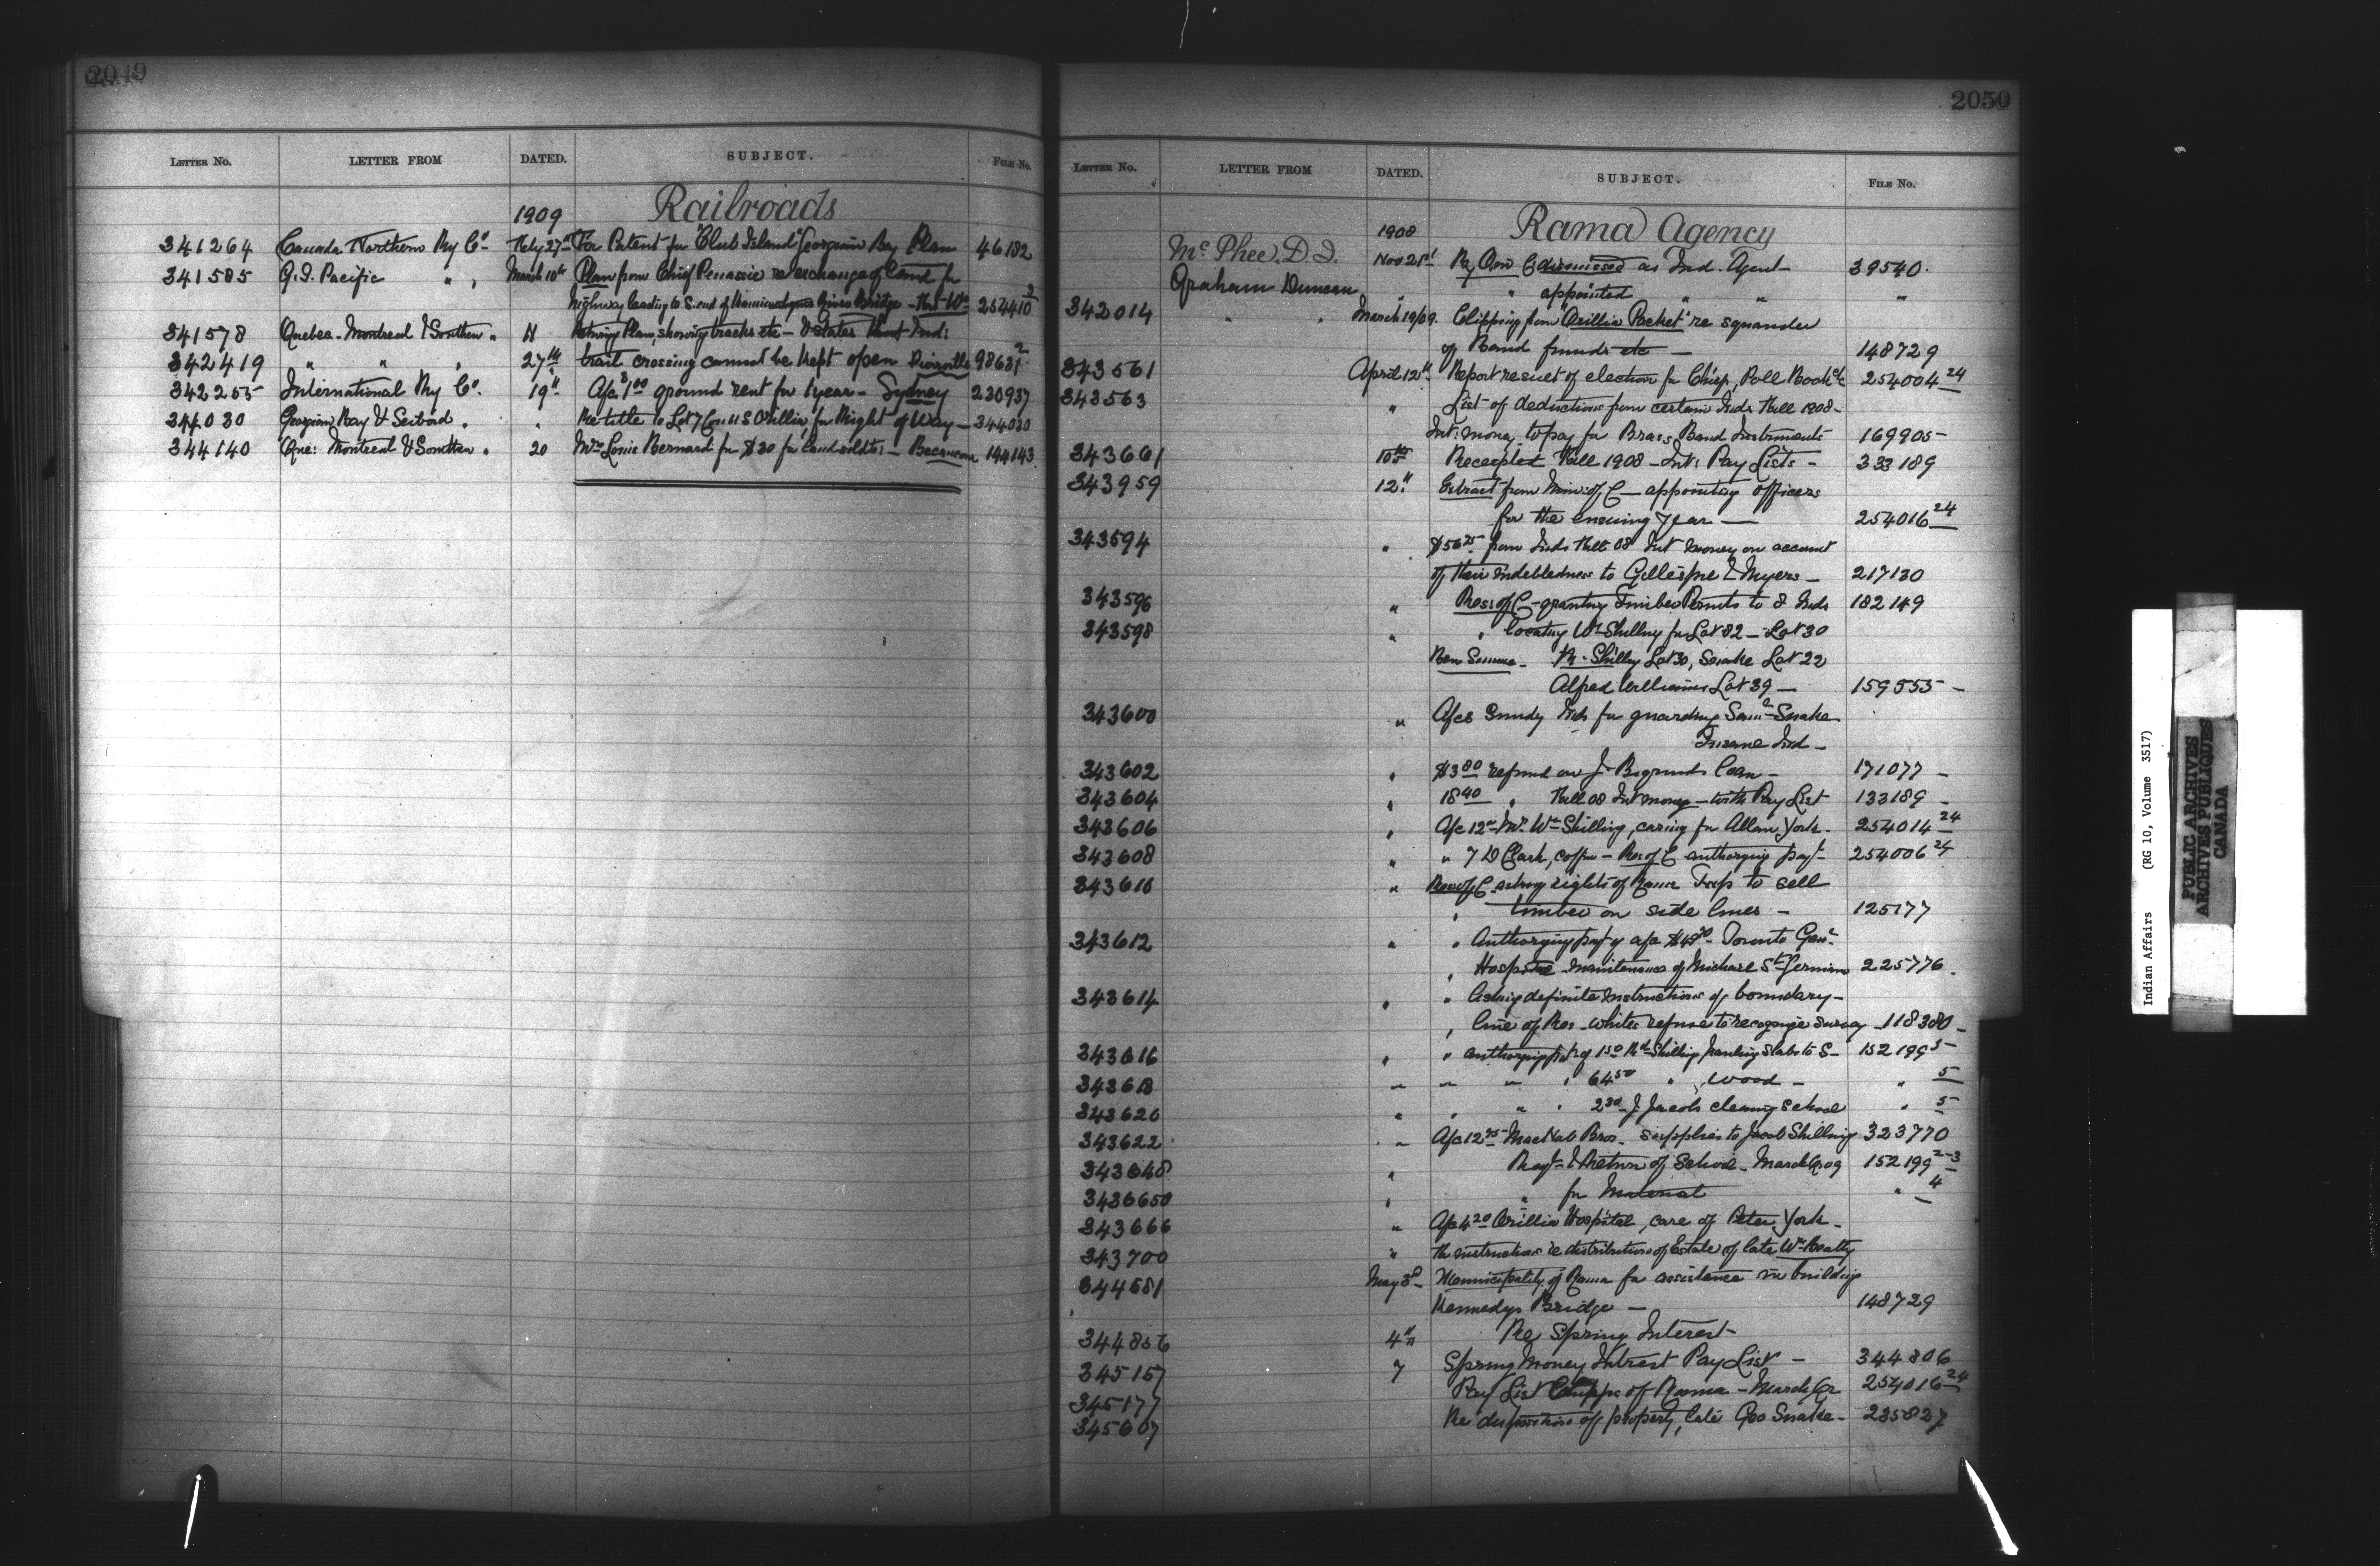 2049
LETTER No. LETTER FROM DATED. SUBJECT. FILE No.
1909 Railroads
341264 Canada Northern Ry Co. Feby 27th For Patent for "Club Island" Georgian Bay Plan 46182
341585 G.T. Pacific " " March 10th Plan from Chief Penassie re exchange of land for
highway leading to S. end of River Bridge - Fort Wm 254410 2
341578 Quebec Montreal & Southern " 11 Plan, showing tracks etc - & states that Inds
342419 " " " 27th trail crossing cannot be kept open Pierreville 98631 2
342255 International Ry Co. 19th A/c $1.00 ground rent for 1 year - Sydney 230937
344030 Georgian Bay & Seibord " " Re title to Lot 7 Con 11 S Orillia, for Right of Way - 344030
344140 Que: Montreal & Southern " 20 Mrs Louis Bernard for $30 for land sold to: - Becancour 194143
2050
LETTER No. LETTER FROM DATED. SUBJECT. FILE No.
1908 Rama Agency
McPhee. D. J. Nov 21st By O in C dismissed as Ind. Agent 39540
Graham Duncan " " appointed " " "
342014 " " March 19/09 Clipping from "Orillia Packet" re squander
of Band funds etc - 148729
343561 April 12th Report result of election for Chief, Poll Book etc 254004 24
343563 " List of deductions from certain Inds Fall 1908 -
Int: money to pay for Brass Band Instruments 169905 -
343661 10th Receipted Fall 1908 - Int: Pay Lists - 333189
343959 12th Extract from Mins: of C - appointing officers
for the ensuing year - 254016 24
343594 " $56.25 from Inds Fall 08 Int money on account
of their indebtedness to Gillespie & Myers - 217130
343596 " Res: of C - granting Timber Permits to 8 Inds 182149
343598 " " locating Wm Shilling for Lot 82 - Lot 30
Shilling Lot 30, Snake Lot 22
Alfred Williams Lot 39 - 159555 -
343600 " A/cs Sundry Inds for guarding Saml Snake
Insane Ind -
343602 " $3.80 refund on J. Bigwinds loan - 171077 -
343604 " 18.40 " Fall 08 Int money - with Pay List 133189 -
343606 " A/c 12 - Mr Wm Shilling, caring for Allan York - 254014 24
343608 " " 7 D Clark, coffin - Res of C authorizing payt - 254006 24
343610 " Res of C asking rights of Rama Twp to sell
" timber on side lines - 125177
343612 " " Authorizing payt of a/c Toronto Genl
" Hospital - maintenance of Michael St Germain 225776
343614 " " Asking definite instructions of boundary -
" line of Res - whites refuse to recognize survey - 118380 -
343616 " " authorizing payt of 1.50 Shilling hauling slabs to S - 152199 5
343618 " " " " 64.50 " Wood - " 5
343620 " " " " 2.50 J Jacobs cleaning school " 5
343622 " A/c 12.75 MacNab Bros - supplies to Jacob Shilling 323770
343648 " Reqn & Return of School - March Qr 09 152199 2-3
343650 " " for Material " 4
343666 " A/c 4.20 Orillia Hospital, care of Peter York -
343700 " Re instructions re distribution of Estate of late Wm Beatty
344681 May 3d Municipality of Rama for assistance in building
Kennedys Bridge - 148729
344806 4th Re Spring Interest
345157 7 Spring Money Interest Pay List - 344806
345177 Pay List Chipps of Rama - March Qr 254016 24
345607 Re disposition of property, late Geo Snake - 235827
Indian Affairs (RG 10, Volume 3517)
PUBLIC ARCHIVES
ARCHIVES PUBLIQUES
CANADA